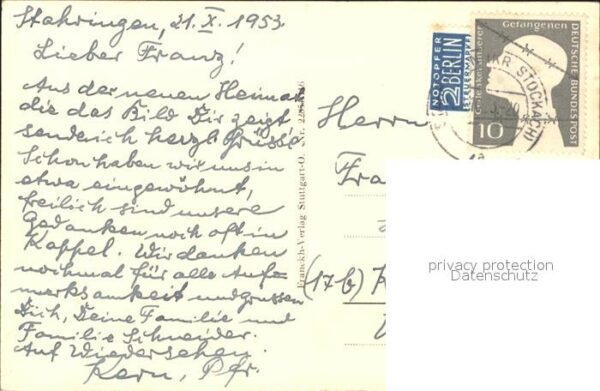 Stahringen, 21. X. 1953.
Lieber Franz!
Aus der neuen Heimat
die das Bild Dir zeigt
sende ich herzl. Grüsse
Schon haben wir uns in
etwa eingewöhnt,
freilich sind unsere
Gedanken noch oft in
Kappel. Wir danken
nochmal für alle Auf-
merksamkeit und grüssen
Dich, Deine Familie und
Familie Schneider.
Auf Wiedersehen.
Kern, Pfr.
Franckh-Verlag Stuttgart-O.
NOTOPFER
2 BERLIN
STEUERMARKE
Gedenket unserer
Gefangenen
DEUTSCHE BUNDESPOST
10
KR STOCKACH
Herrn
Fra
(17b) K
privacy protection
Datenschutz